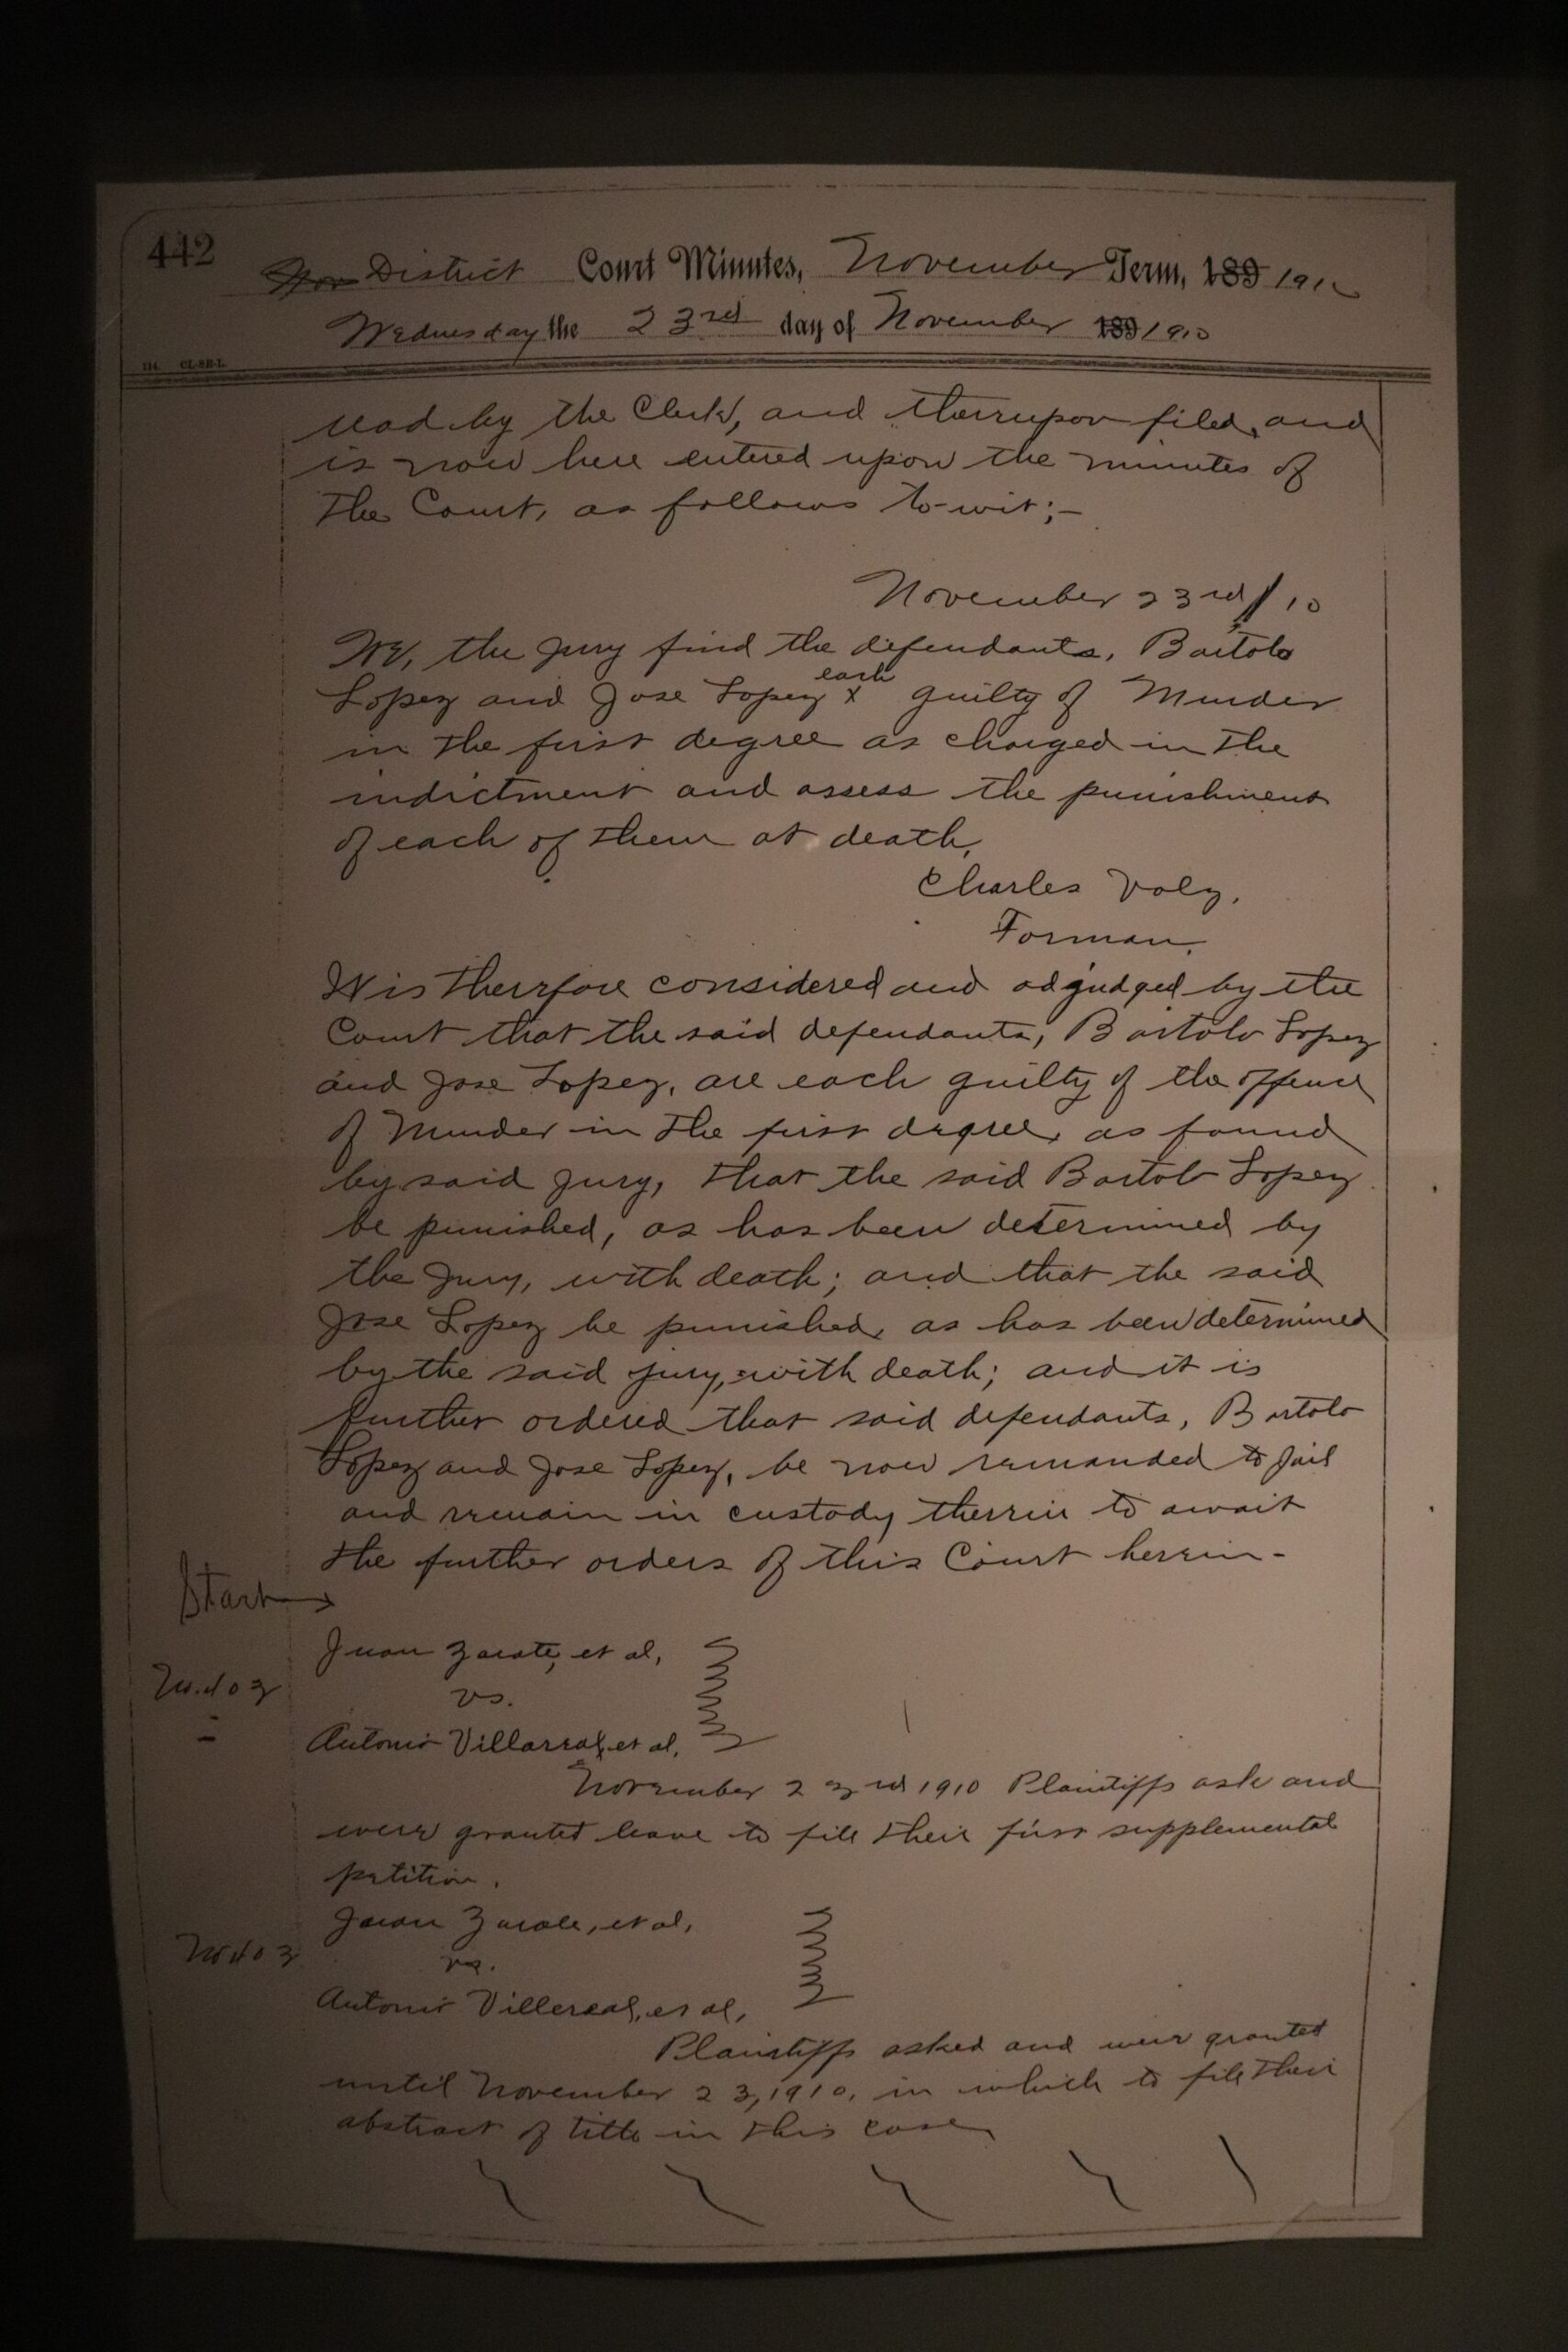 442
District Court Minutes, November Term, 189 1910
Wednesday the 23rd day of November 189 1910
114 CL-SE-L
read by the Clerk, and thereupon filed, and
is now here entered upon the minutes of
the Court, as follows to-wit;-
November 23rd/10
We, the jury find the defendants, Bartolo
each
Lopez and Jose Lopez x guilty of Murder
in the first degree as charged in the
indictment and assess the punishment
of each of them at death,
Charles Volz,
Forman.
It is therefore considered and adjudged by the
Court that the said defendants, Bartolo Lopez
and Jose Lopez, are each guilty of the offense
of Murder in the first degree, as found
by said jury, that the said Bartolo Lopez
be punished, as has been determined by
the Jury, with death; and that the said
Jose Lopez be punished, as has been determined
by the said jury, with death; and it is
further ordered that said defendants, Bartolo
Lopez and Jose Lopez, be now remanded to jail
and remain in custody therein to await
the further orders of this Court herein-
Start →
Juan Zarate, et al,
No. 403
vs.
Antonio Villarreal, et al,
November 23rd 1910 Plaintiffs ask and
were granted leave to file their first supplemental
petition.
Juan Zarate, et al,
No 403
vs.
Antonio Villereal, et al,
Plaintiffs asked and were granted
until November 23, 1910, in which to file their
abstract of title in this case